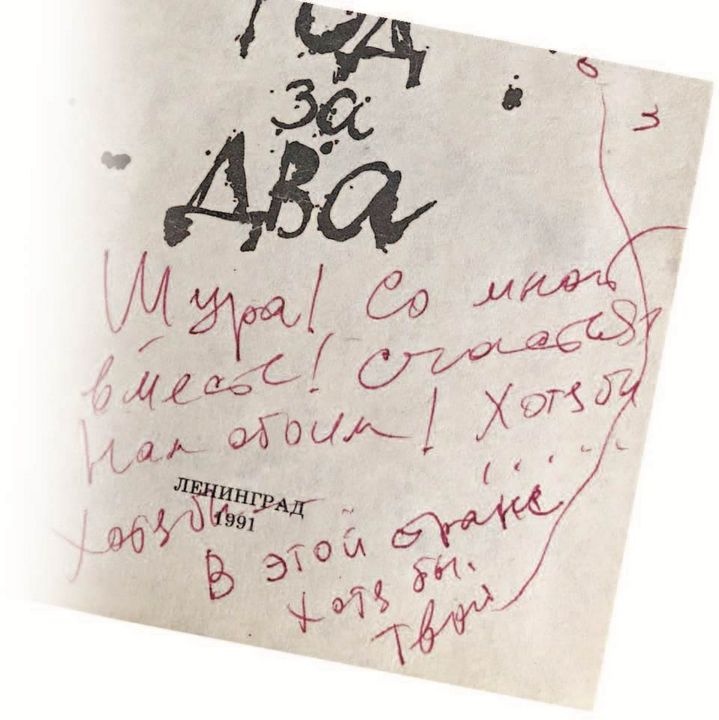 ГОД
за
ДВА
Шура! Со мной
вместе! Счастья
Нам обоим! Хотя бы
ЛЕНИНГРАД
1991
Хотя бы
В этой стране
хотя бы.
Твой